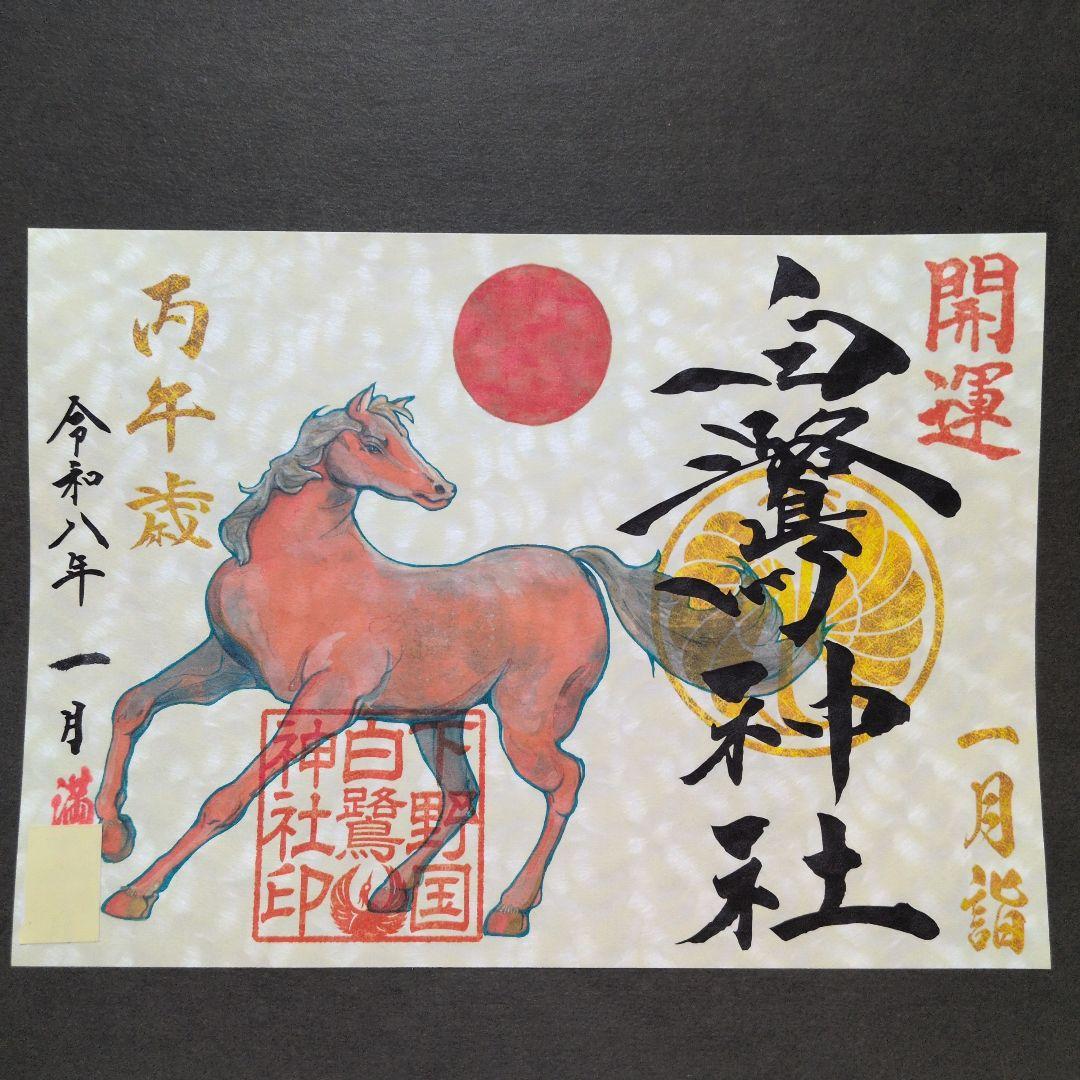 開運
一月詣
白鷺神社
下野国
白鷺
神社印
丙午歳
令和八年 一月
満